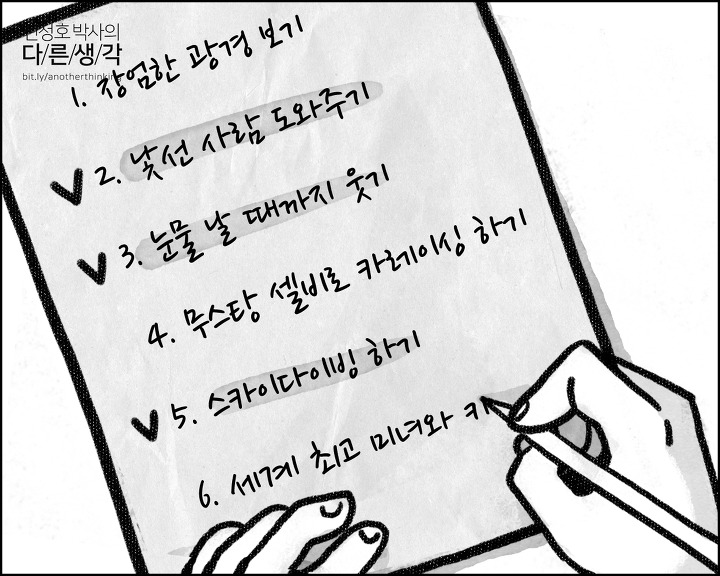 박사의
다/른/생/각
bit.ly/anotherthinking
1. 장엄한 광경 보기
2. 낯선 사람 도와주기
3. 눈물 날 때까지 웃기
4. 무스탕 셸비로 카레이싱 하기
5. 스카이다이빙 하기
6. 세계 최고 미녀와 키